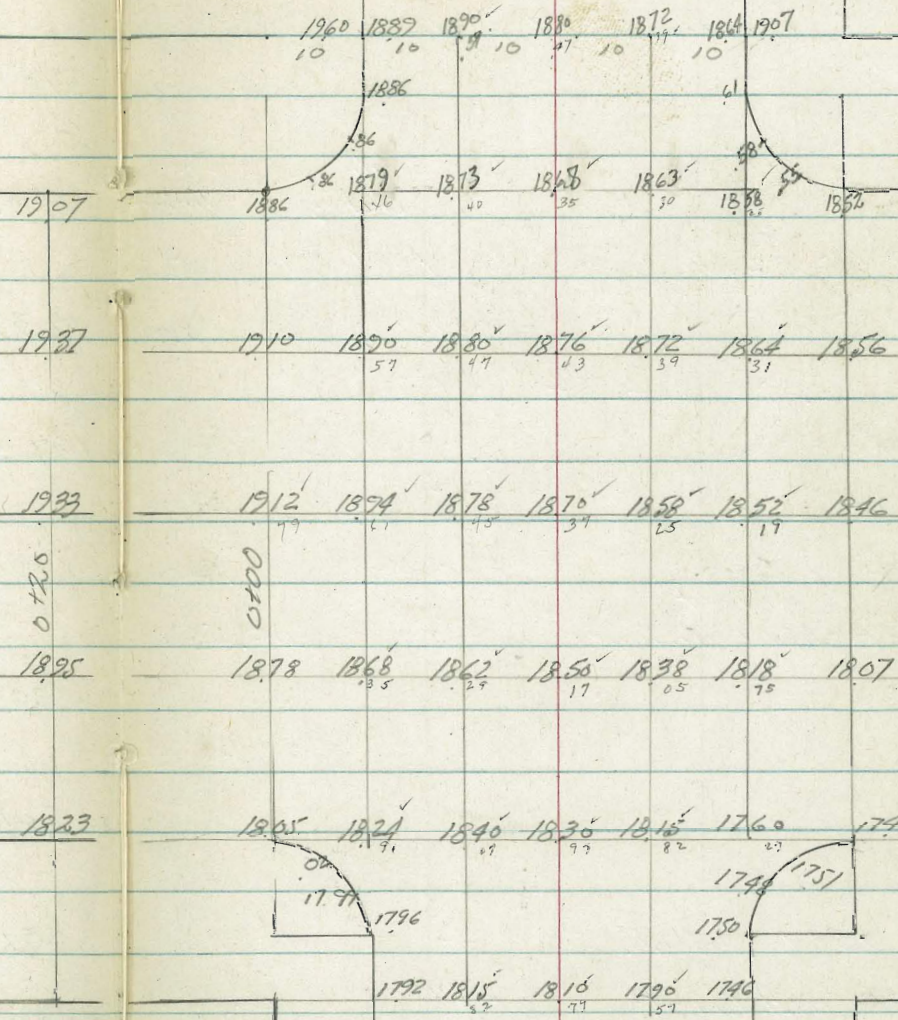 1960 1889 1890✓ 1880✓ 1872✓ 1864 1907
10 10 10 10 10
1886 61
86 58
86 1879✓ 1873✓ 1868✓ 1863✓ 55
1907 1886 46 40 35 30 1858 1852
1937 1910 1890✓ 1880✓ 1876✓ 1872✓ 1864✓ 1856
57 47 43 39 31
1933 1912✓ 1894✓ 1878✓ 1870✓ 1858✓ 1852✓ 1846
79 61 45 37 25 19
0+20 0+00
1895 1878 1868✓ 1862✓ 1850✓ 1838✓ 1818✓ 1807
35 29 17 05 75
1823 1805 1824✓ 1840✓ 1830✓ 1815✓ 1760 174
91 07 97 82 27
02 1748 1751
1796 1750
1792 1815✓ 1810✓ 1790✓ 1746
77 57